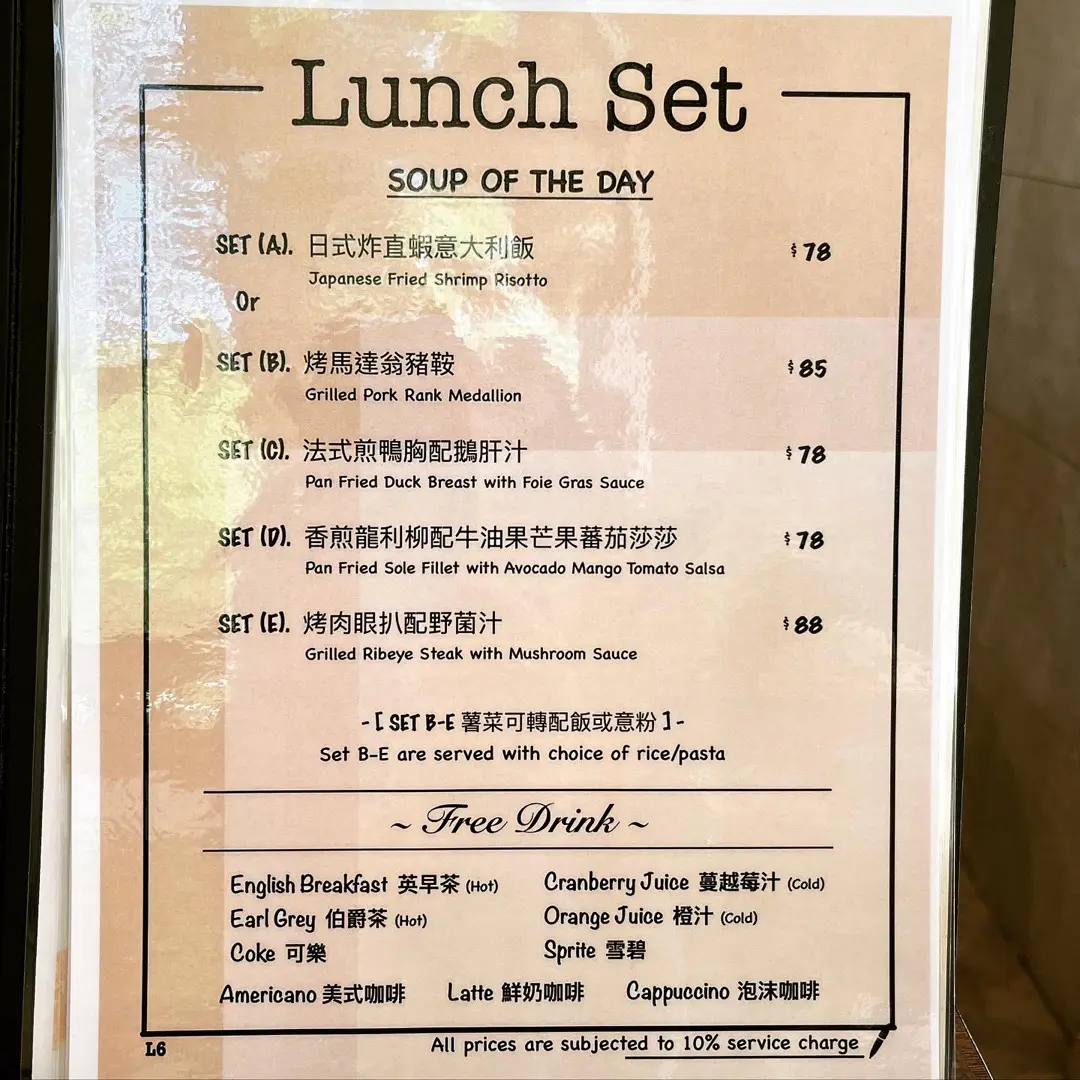 Lunch Set
SOUP OF THE DAY
SET (A). 日式炸直蝦意大利飯 $78
Japanese Fried Shrimp Risotto
Or
SET (B). 烤馬達翁豬鞍 $85
Grilled Pork Rank Medallion
SET (C). 法式煎鴨胸配鵝肝汁 $78
Pan Fried Duck Breast with Foie Gras Sauce
SET (D). 香煎龍利柳配牛油果芒果蕃茄莎莎 $78
Pan Fried Sole Fillet with Avocado Mango Tomato Salsa
SET (E). 烤肉眼扒配野菌汁 $88
Grilled Ribeye Steak with Mushroom Sauce
-[ SET B-E 薯菜可轉配飯或意粉 ]-
Set B-E are served with choice of rice/pasta
~ Free Drink ~
English Breakfast 英早茶 (Hot) Cranberry Juice 蔓越莓汁 (Cold)
Earl Grey 伯爵茶 (Hot) Orange Juice 橙汁 (Cold)
Coke 可樂 Sprite 雪碧
Americano 美式咖啡 Latte 鮮奶咖啡 Cappuccino 泡沫咖啡
L6 All prices are subjected to 10% service charge